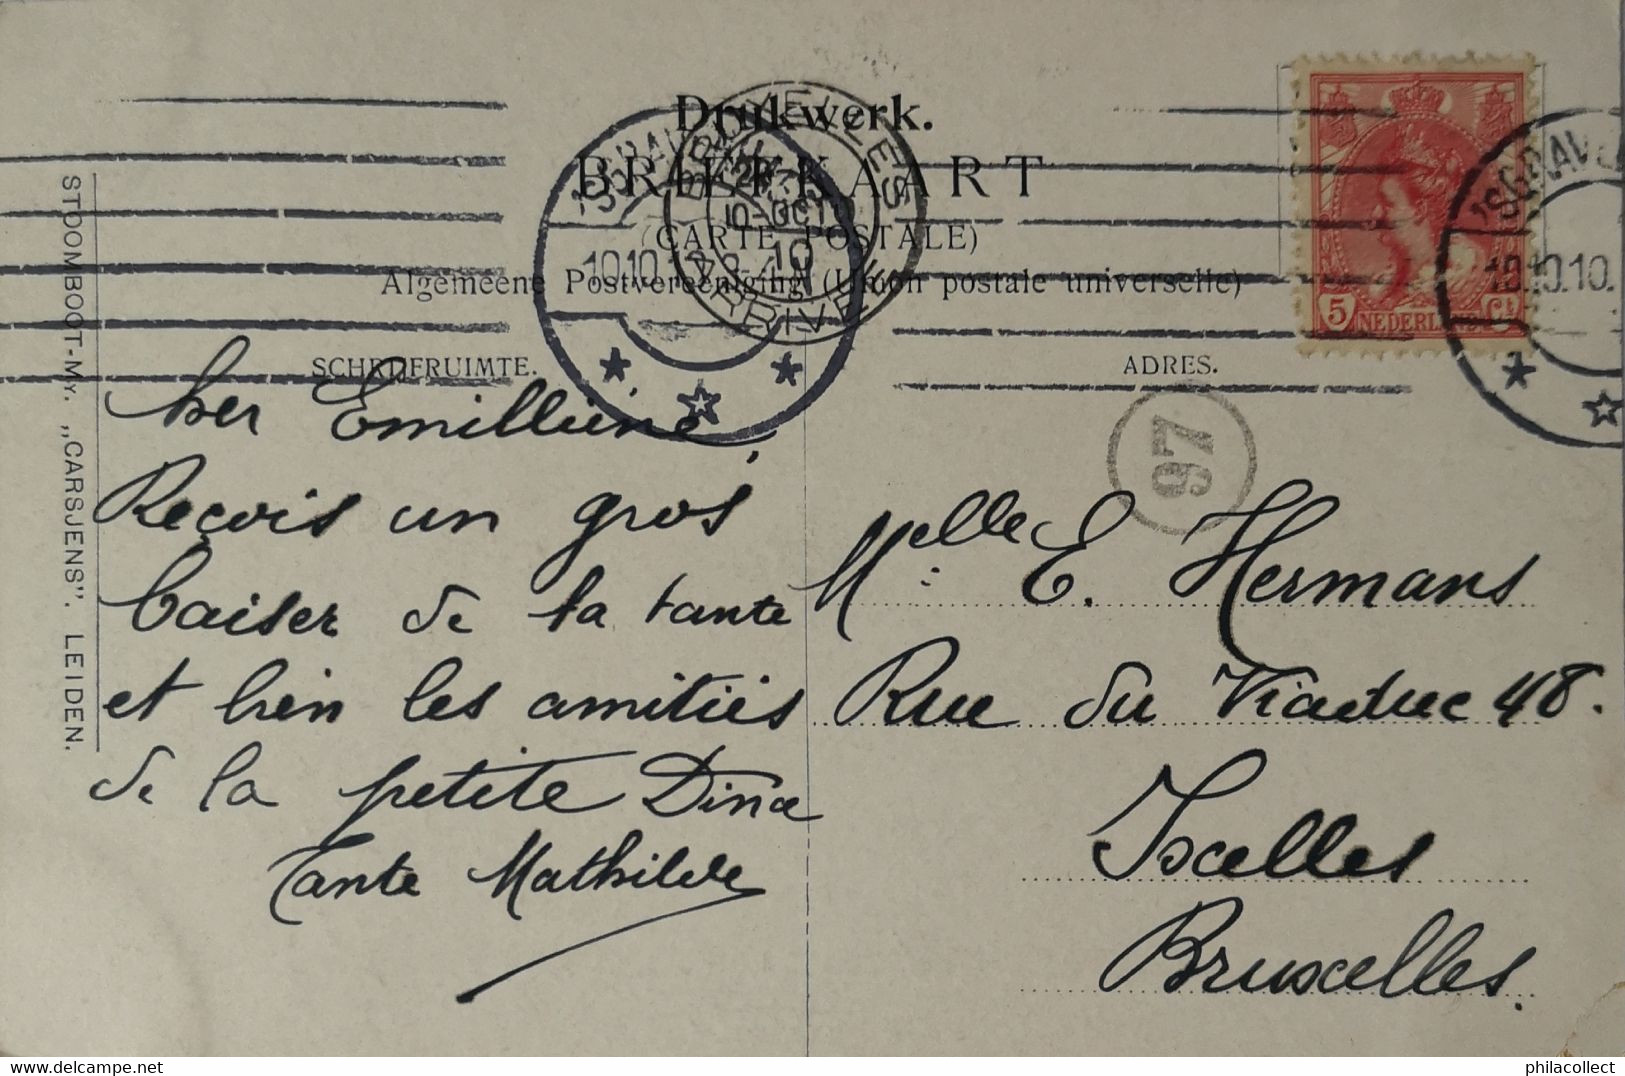 Drukwerk.
BRIEFKAART
(CARTE POSTALE)
Algemeene Postvereeniging (Union postale universelle)
SCHRIJFRUIMTE.
ADRES.
STOOMBOOT-My. „CARSJENS”. LEIDEN.
BRUXELLES
10-OCT
10
ARRIVEE
'SGRAVENHAGE
10.10.10
'SGRAVE
10.10.10.
5 NEDERLAND Ct
97
Emilliene,
Reçois un gros
baiser de ta tante
et bien les amitiés
de la petite Dina
Tante Mathilde
Melle E. Hermans
Rue du Viaduc 48.
Ixelles
Bruxelles.
delcampe.net
philacollect